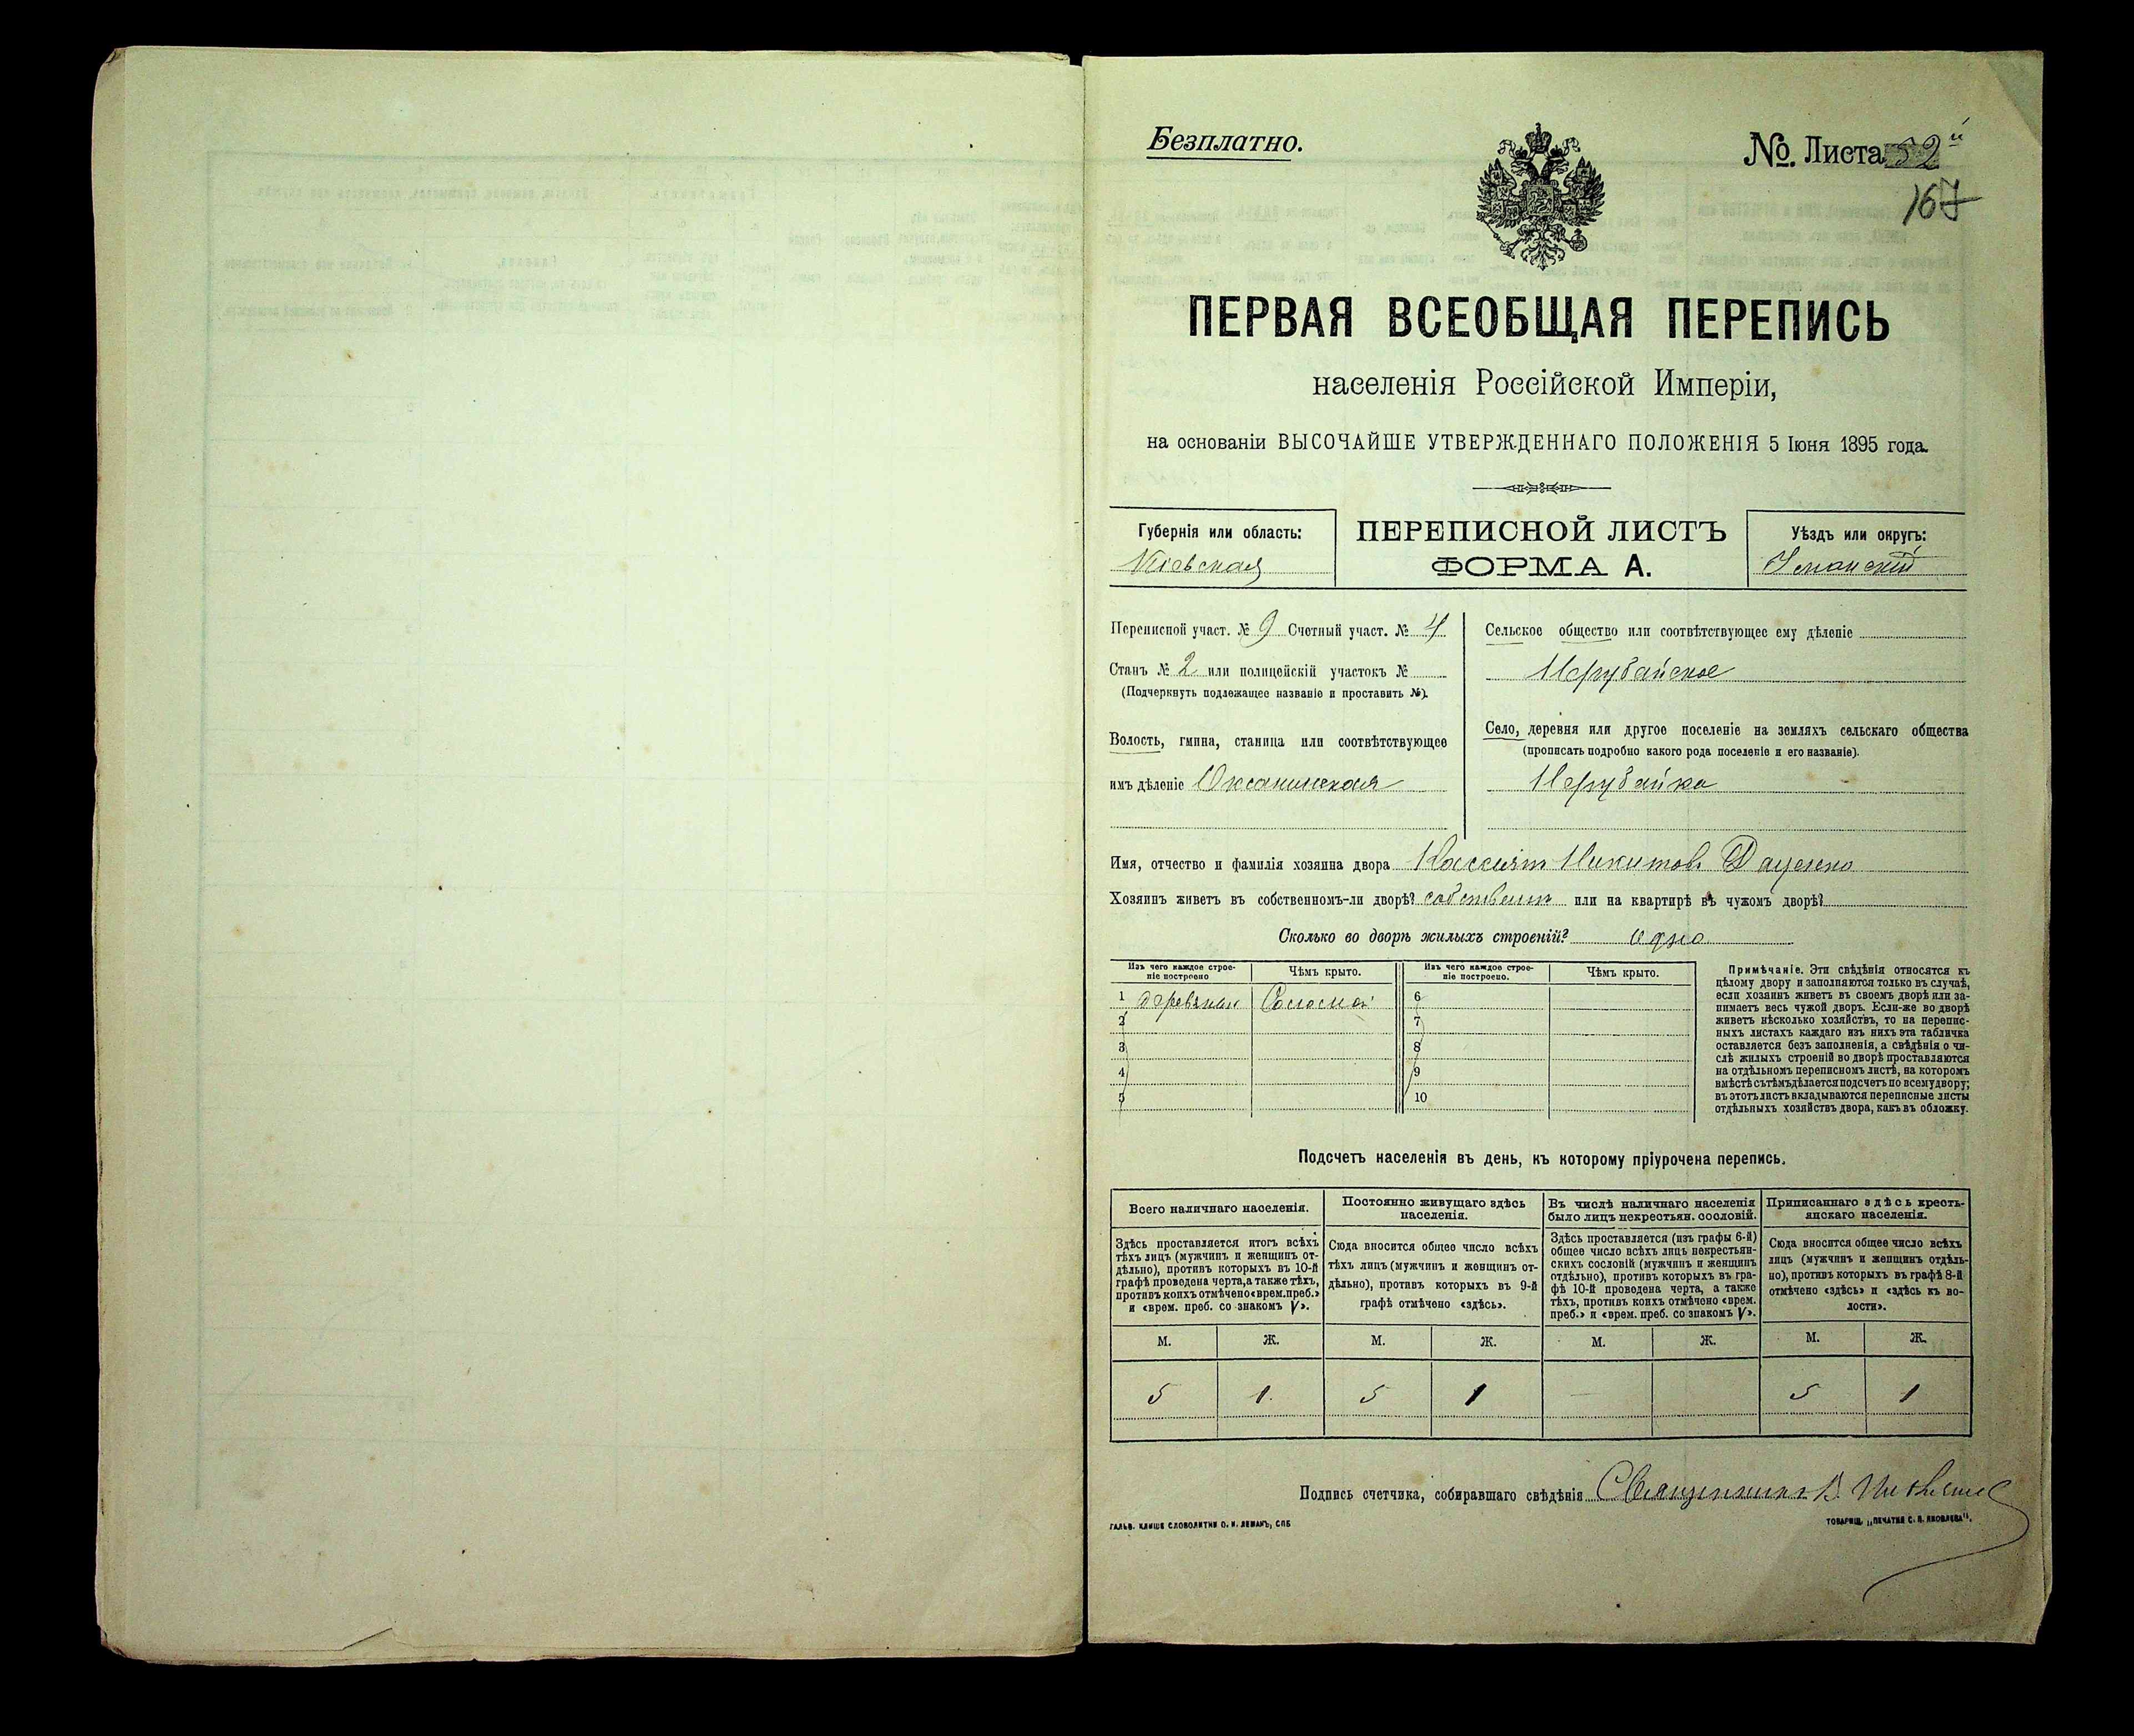 Безплатно.
№. Листа 52й
167
ПЕРВАЯ ВСЕОБЩАЯ ПЕРЕПИСЬ
населенія Россійской Имперіи,
на основаніи ВЫСОЧАЙШЕ УТВЕРЖДЕННАГО ПОЛОЖЕНІЯ 5 Іюня 1895 года.
Губернія или область:
Кіевская
ПЕРЕПИСНОЙ ЛИСТЪ
ФОРМА А.
Уѣздъ или округъ:
Уманскій
Переписной участ. № 9 Счетный участ. № 4
Станъ № 2 или полицейскій участокъ №
(Подчеркнуть подлежащее названіе и проставить №).
Волость, гмина, станица или соотвѣтствующее
имъ дѣленіе Оксанинская
Сельское общество или соотвѣтствующее ему дѣленіе
Нерубайское
Село, деревня или другое поселеніе на земляхъ сельскаго общества
(прописать подробно какого рода поселеніе и его названіе).
Нерубайка
Имя, отчество и фамилія хозяина двора Кассіян Никитовъ Даценко
Хозяинъ живетъ въ собственномъ-ли дворѣ? собствен. или на квартирѣ въ чужомъ дворѣ?
Сколько во дворѣ жилыхъ строеній? Одно
Изъ чего каждое строе-
ніе построено
Чѣмъ крыто.
Изъ чего каждое строе-
ніе построено.
Чѣмъ крыто.
1 Соломой 6
2 7
3 8
4 9
5 10
Примѣчаніе. Эти свѣдѣнія относятся къ
цѣлому двору и заполняются только въ случаѣ,
если хозяинъ живетъ въ своемъ дворѣ или за-
нимаетъ весь чужой дворъ. Если-же во дворѣ
живетъ нѣсколько хозяйствъ, то на перепис-
ныхъ листахъ каждаго изъ нихъ эта табличка
оставляется безъ заполненія, а свѣдѣнія о чи-
слѣ жилыхъ строеній во дворѣ проставляются
на отдѣльномъ переписномъ листѣ, на которомъ
вмѣстѣ съ тѣмъ дѣлается подсчетъ по всему двору;
въ этотъ листъ вкладываются переписные листы
отдѣльныхъ хозяйствъ двора, какъ въ обложку.
Подсчетъ населенія въ день, къ которому пріурочена перепись.
Всего наличнаго населенія.
Постоянно живущаго здѣсь
населенія.
Въ числѣ наличнаго населенія
было лицъ некрестьян. сословій.
Приписаннаго здѣсь кресть-
янскаго населенія.
Здѣсь проставляется итогъ всѣхъ
тѣхъ лицъ (мужчинъ и женщинъ от-
дѣльно), противъ которыхъ въ 10-й
графѣ проведена черта, а также тѣхъ,
противъ коихъ отмѣчено «врем. преб.»
и «врем. преб. со знакомъ V».
Сюда вносится общее число всѣхъ
тѣхъ лицъ (мужчинъ и женщинъ от-
дѣльно), противъ которыхъ въ 9-й
графѣ отмѣчено «здѣсь».
Здѣсь проставляется (изъ графы 6-й)
общее число всѣхъ лицъ некрестьян-
скихъ сословій (мужчинъ и женщинъ
отдѣльно), противъ которыхъ въ гра-
фѣ 10-й проведена черта, а также
тѣхъ, противъ коихъ отмѣчено «врем.
преб.» и «врем. преб. со знакомъ V».
Сюда вносится общее число всѣхъ
лицъ (мужчинъ и женщинъ отдѣль-
но), противъ которыхъ въ графѣ 8-й
отмѣчено «здѣсь» и «здѣсь къ во-
лости».
М. Ж. М. Ж. М. Ж. М. Ж.
5 1 5 1 — 5 1
Подпись счетчика, собиравшаго свѣдѣнія Священникъ В.
ГАЛЬВ. КЛИШЕ СЛОВОЛИТНИ О. И. ЛЕМАНЪ, СПБ
ТОВАРИЩ. „ПЕЧАТНЯ С. П. ЯКОВЛЕВА".